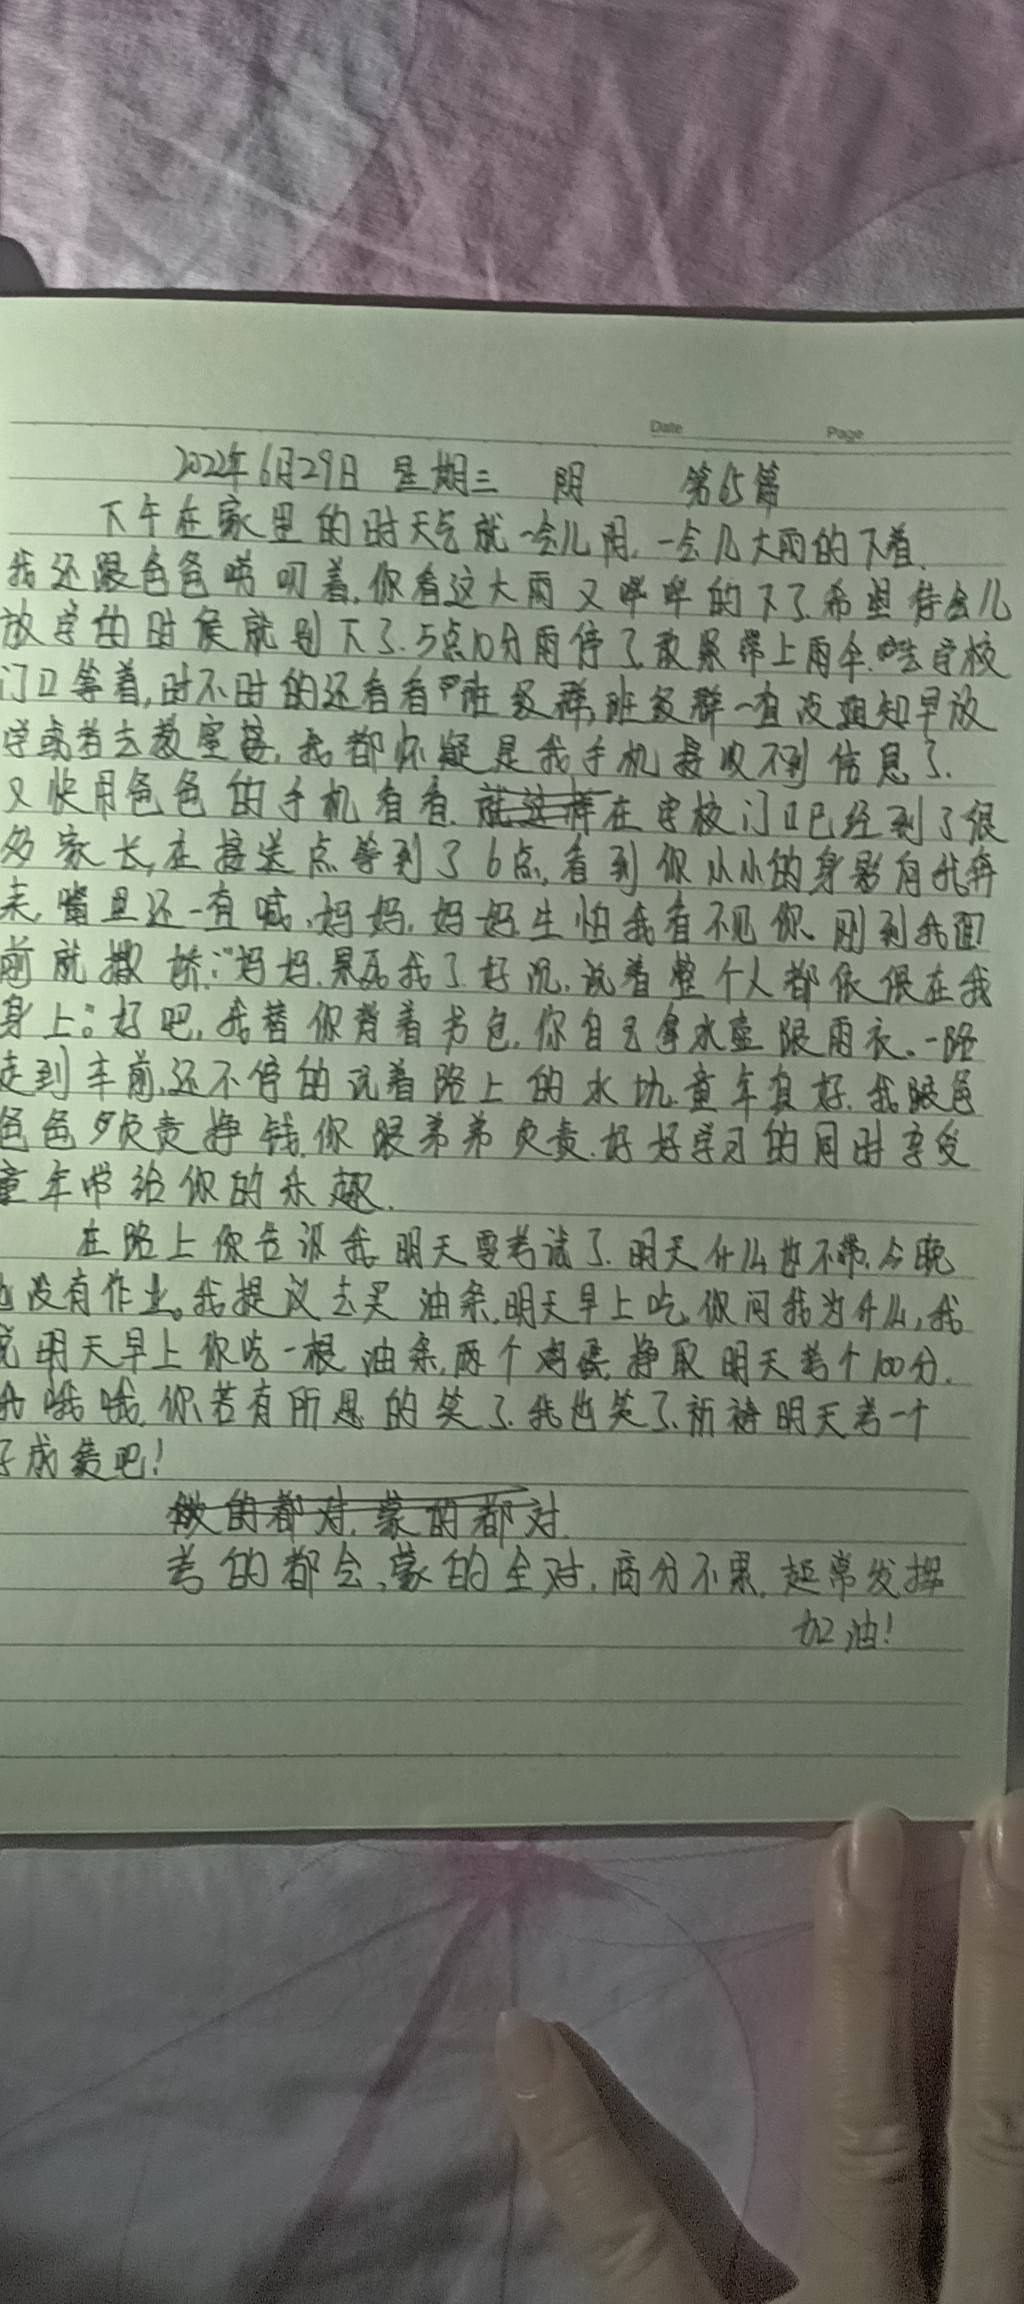 Date Page
2022年6月29日 星期三 阴 第65篇
下午在家里的时天气就一会儿阴,一会儿大雨的下着.
我还跟爸爸唠叨着,你看这大雨又哗哗的下了.希望待会儿
放学的时候就别下了.5点10分雨停了,敢紧带上雨伞.去学校
门口等着,时不时的还看看班级群,班级群一直没通知早放
学或者去教室接,我都怀疑是我手机接收不到信息了.
又快用爸爸的手机看看.就这样在学校门口已经到了很
多家长,在接送点等到了6点,看到你小小的身影向我奔
来,嘴里还一直喊,妈妈,妈妈.生怕我看不见你.刚到我面
前就撒娇:"妈妈.累死我了.好沉,说着整个人都依偎在我
身上。好吧,我替你背着书包,你自己拿水壶跟雨衣。一路
走到车前,还不停的说着路上的水坑.童年真好.我跟爸
爸负责挣钱,你跟弟弟负责.好好学习的同时享受
童年带给你的乐趣.
在路上你告诉我明天要考试了.明天什么也不带.今晚
也没有作业。我提议去买油条,明天早上吃,你问我为什么,我
说明天早上你吃一根油条,两个鸡蛋,挣取明天考个100分.
哦哦,你若有所思的笑了.我也笑了.祈祷明天考一个
好成绩吧!
做的都对,蒙的都对.
考的都会,蒙的全对,高分不累,超常发挥
加油!